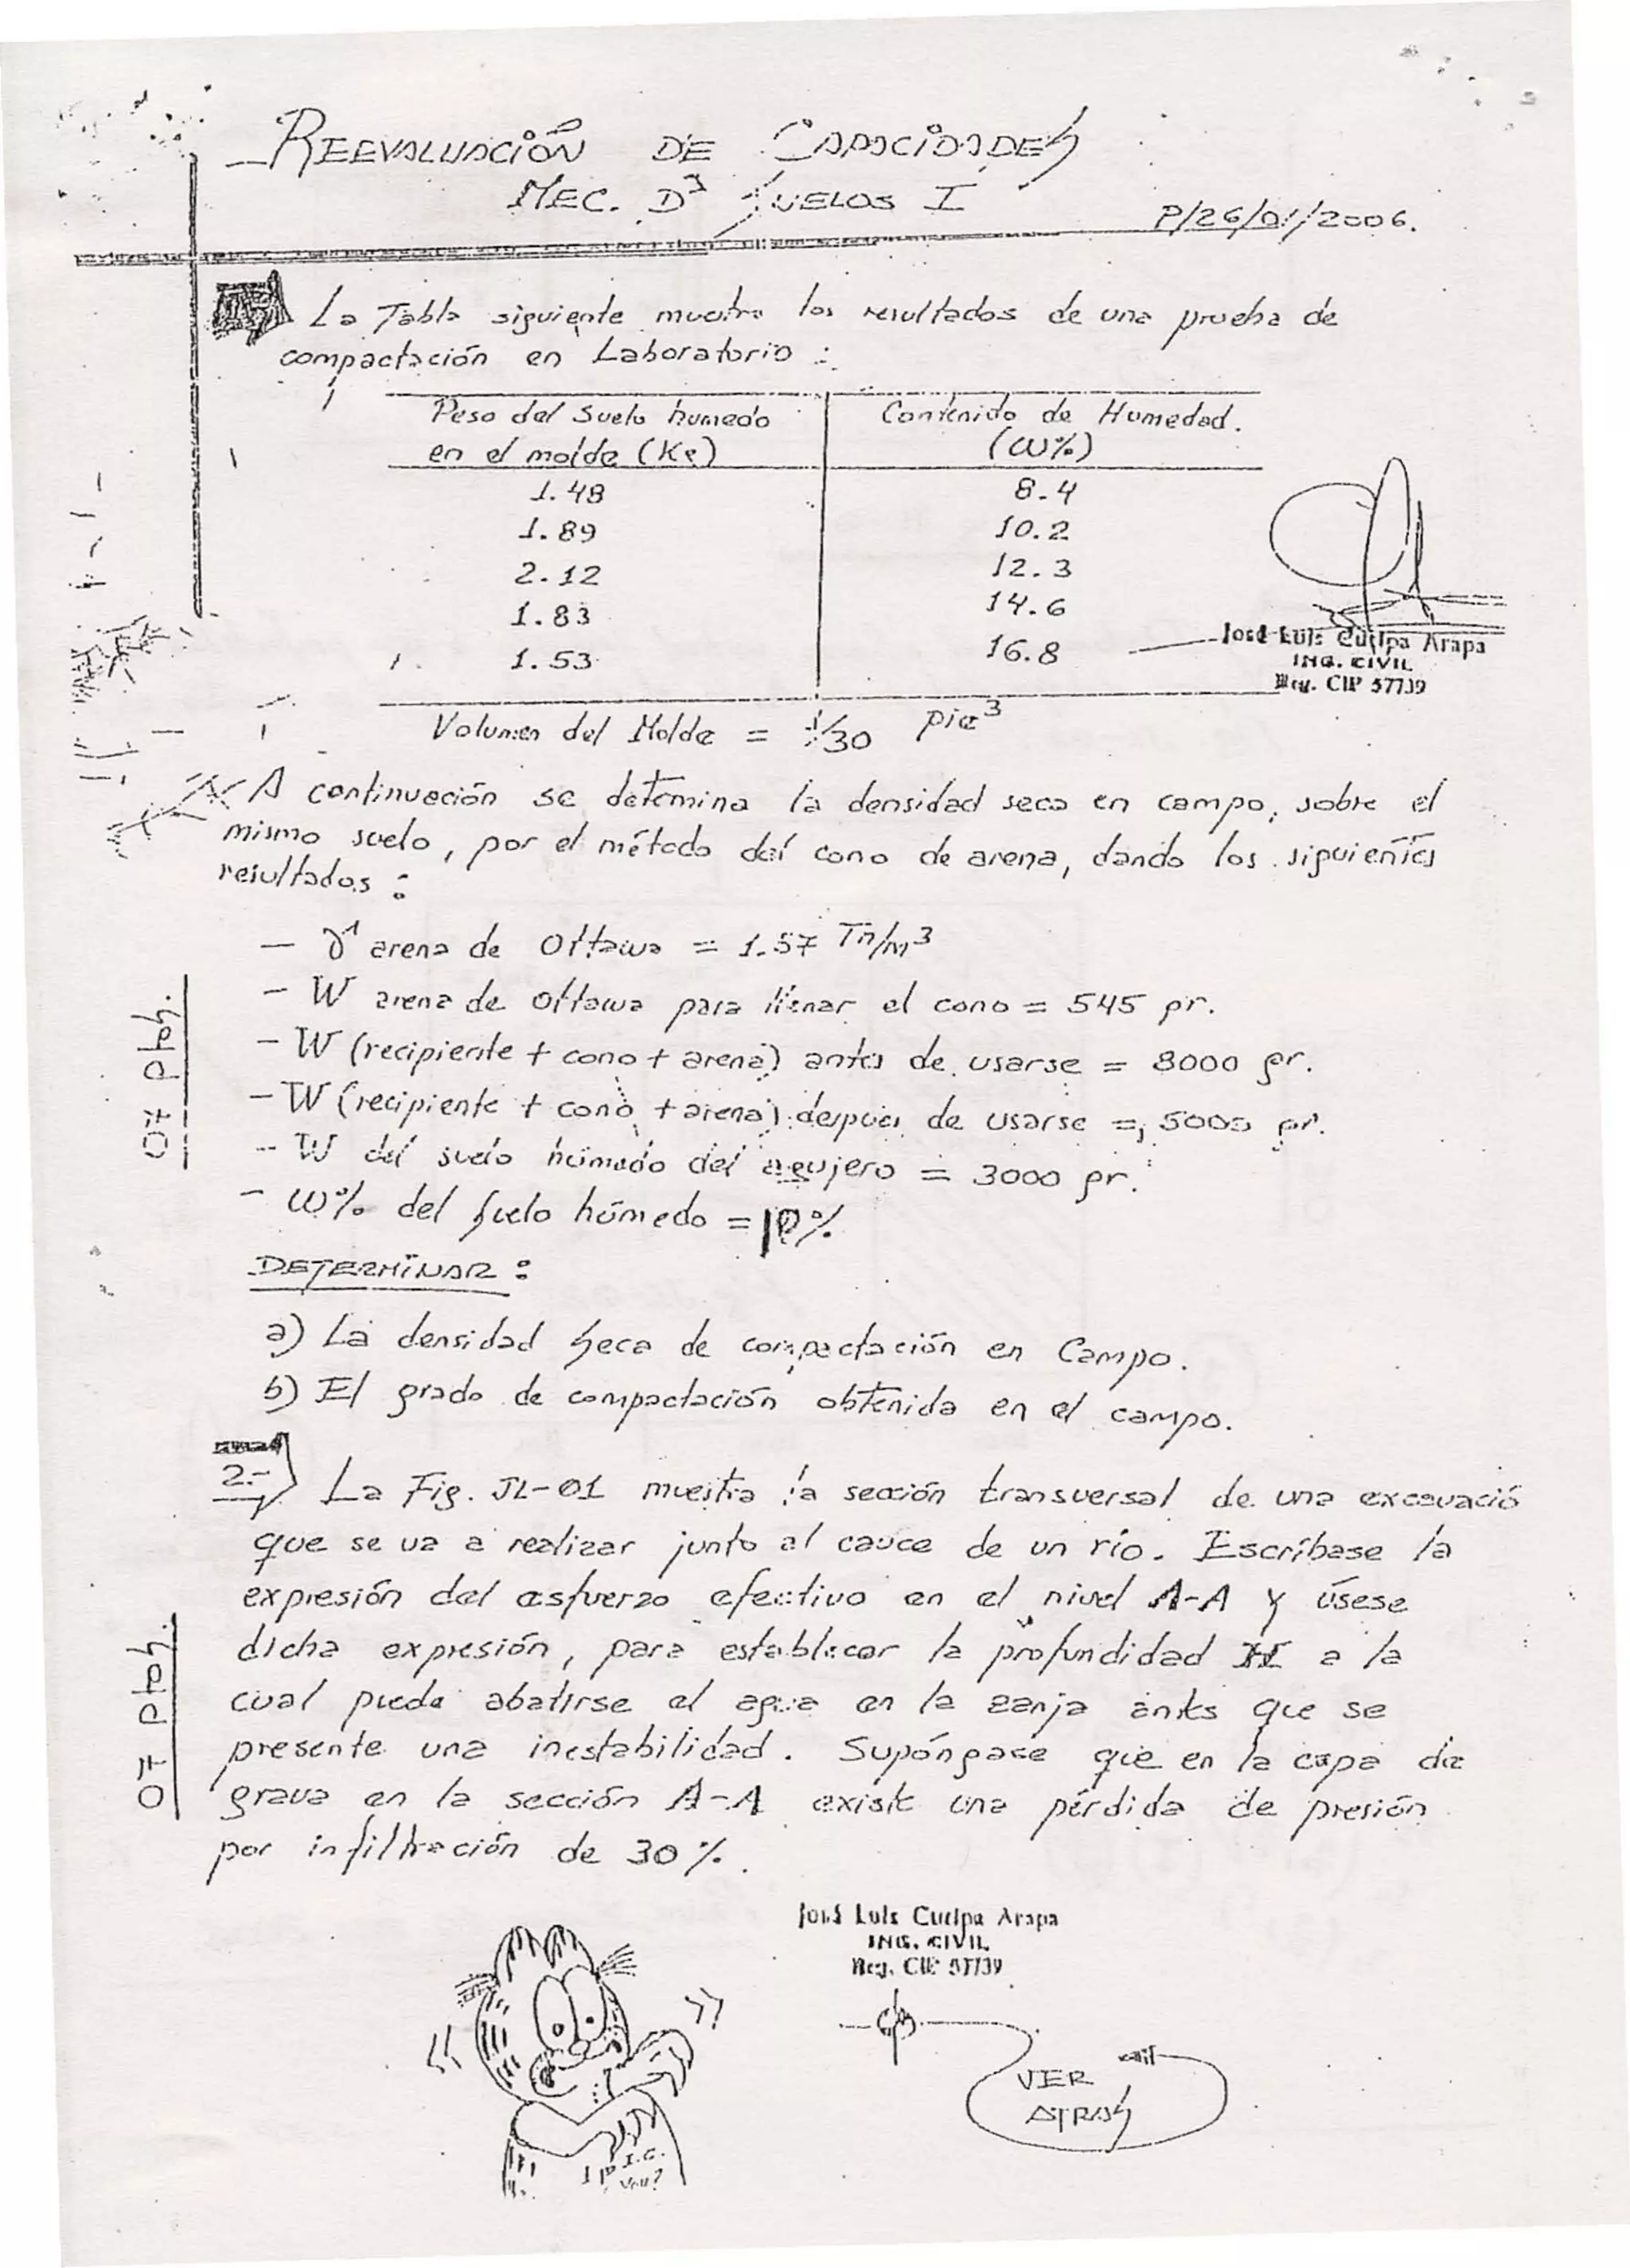 REEVALUACIÓN DE CAPACIDADES
MEC. D SUELOS I
P/26/01/2006.
La Tabla siguiente muestra los resultados de una prueba de
compactación en Laboratorio :
Peso del Suelo húmedo
en el molde (Kg)
Contenido de Humedad.
(W%)
1.48 8.4
1.89 10.2
2.12 12.3
1.83 14.6
1.53 16.8
José Luis Cutipa Arapa
ING. CIVIL
Reg. CIP 57739
Volumen del Molde = 1/30 pie³
A continuación se determina la densidad seca en campo, sobre el
mismo suelo, por el método del cono de arena, dando los siguientes
resultados :
- γ arena de Ottawa = 1.57 Tn/m³
- W arena de Ottawa para llenar el cono = 545 gr.
- W (recipiente + cono + arena) antes de usarse = 8000 gr.
- W (recipiente + cono + arena) despues de usarse = 5000 gr.
- W del suelo húmedo del agujero = 3000 gr.
- W% del suelo húmedo = 10%
07 ptos.
DETERMINAR :
a) La densidad seca de compactación en Campo.
b) El grado de compactación obtenida en el campo.
2.- La Fig. JL-01 muestra la sección transversal de una excavació
que se va a realizar junto al cauce de un río. Escríbase la
expresión del esfuerzo efectivo en el nivel A-A y úsese
dicha expresión, para establecer la profundidad H a la
cual puede abatirse el agua en la zanja antes que se
presente una inestabilidad. Supóngase que en la capa de
grava en la sección A-A existe una pérdida de presión
por infiltración de 30 %.
07 ptos.
José Luis Cutipa Arapa
ING. CIVIL
Reg. CIP 57739
VER
ATRAS